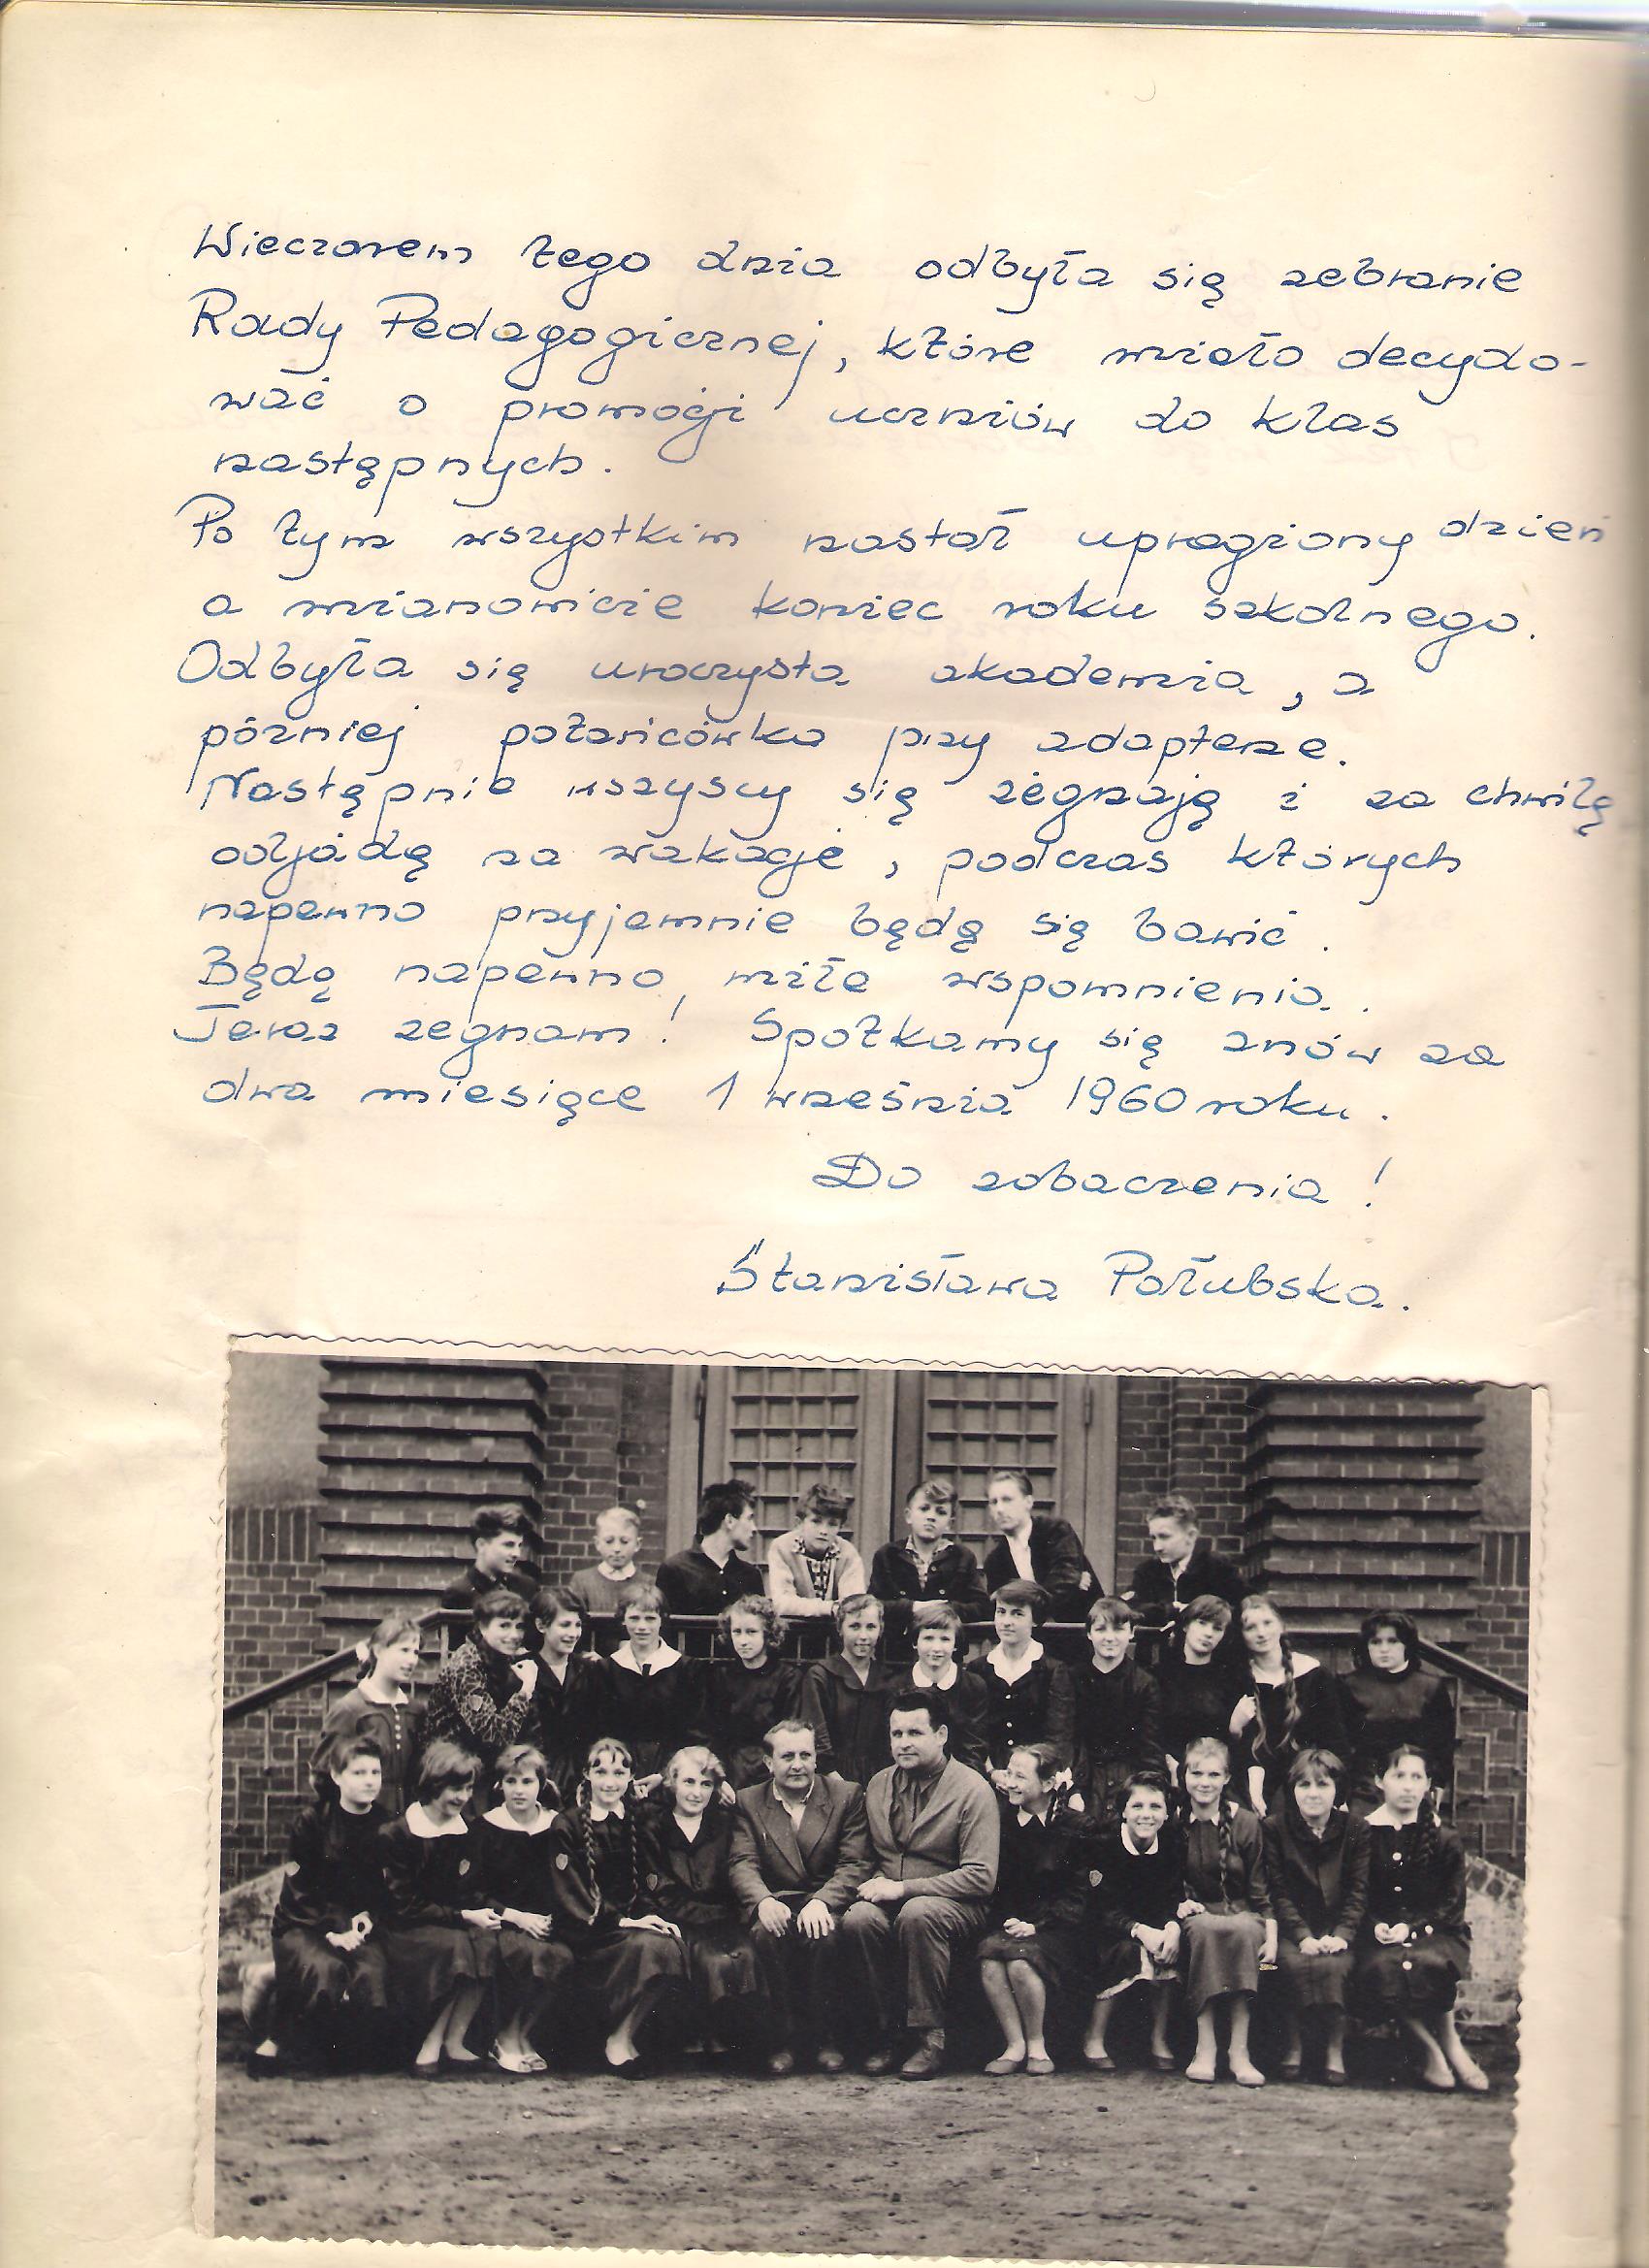 Wieczorem tego dnia odbyła się zebranie
Rady Pedagogicznej, które miało decydo-
wać o promocji uczniów do klas
następnych.
Po tym wszystkim nastał upragniony dzień
a mianowicie koniec roku szkolnego.
Odbyła się uroczysta akademia, a
później potańcówka przy adapterze.
Następnie wszyscy się żegnają i za chwilę
odjadę na wakacje, podczas których
napewno przyjemnie będę się bawić.
Będą napewno miłe wspomnienia.
Teraz żegnam! Spotkamy się znów za
dwa miesiące 1 września 1960 roku.
Do zobaczenia!
Stanisława Połubska.